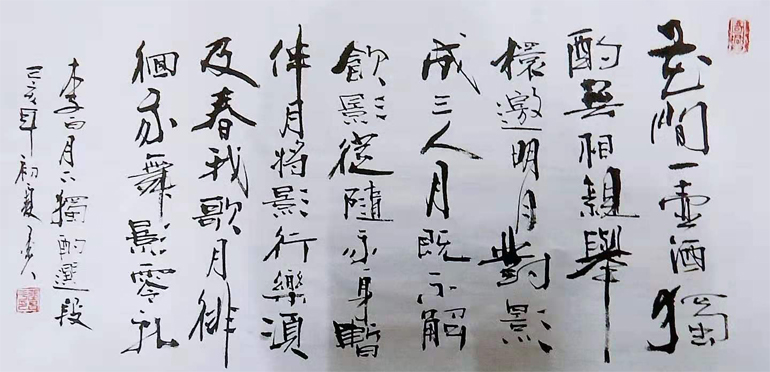 花間一壺酒獨
酌無相親舉
杯邀明月對影
成三人月既不解
飲影從隨我身暫
伴月將影行樂須
及春我歌月徘
徊我舞影零乱
李白月下獨酌選段
己亥年初夏